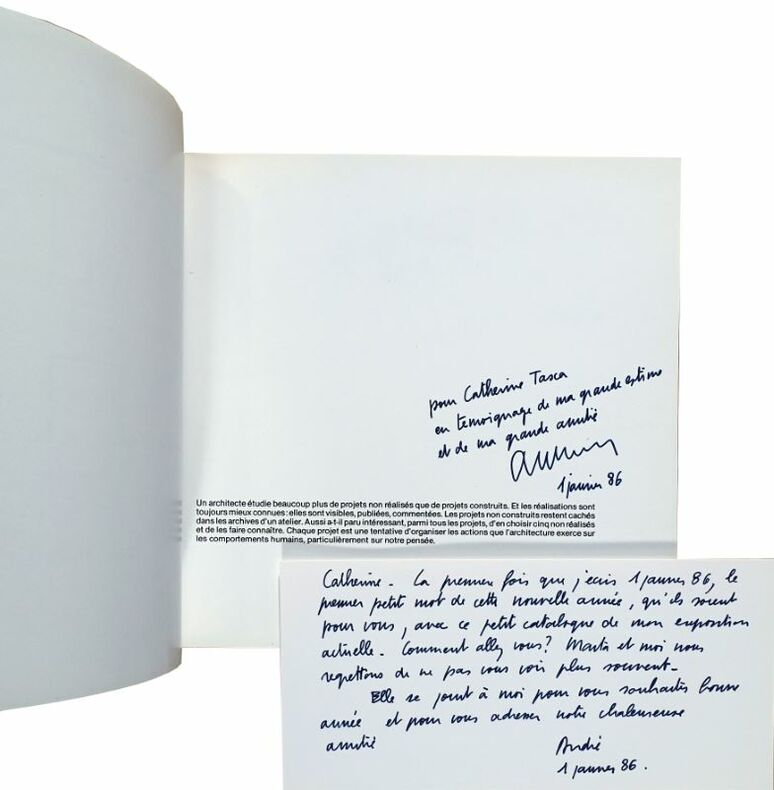 pour Catherine Tasca
en temoignage de ma grande estime
et de ma grande amitié
1 janvier 86
Un architecte étudie beaucoup plus de projets non réalisés que de projets construits. Et les réalisations sont
toujours mieux connues: elles sont visibles, publiées, commentées. Les projets non construits restent cachés
dans les archives d'un atelier. Aussi a-t-il paru intéressant, parmi tous les projets, d'en choisir cinq non réalisés
et de les faire connaître. Chaque projet est une tentative d'organiser les actions que l'architecture exerce sur
les comportements humains, particulièrement sur notre pensée.
Catherine - La premiere fois que j'ecris 1 janvier 86, le
premier petit mot de cette nouvelle année, qu'ils soient
pour vous, avec ce petit catalogue de mon exposition
actuelle - Comment allez vous? Martin et moi nous
regrettons de ne pas vous voir plus souvent -
Elle se joint à moi pour vous souhaiter bonne
année et pour vous adresser notre chaleureuse
amitié
André
1 janvier 86.